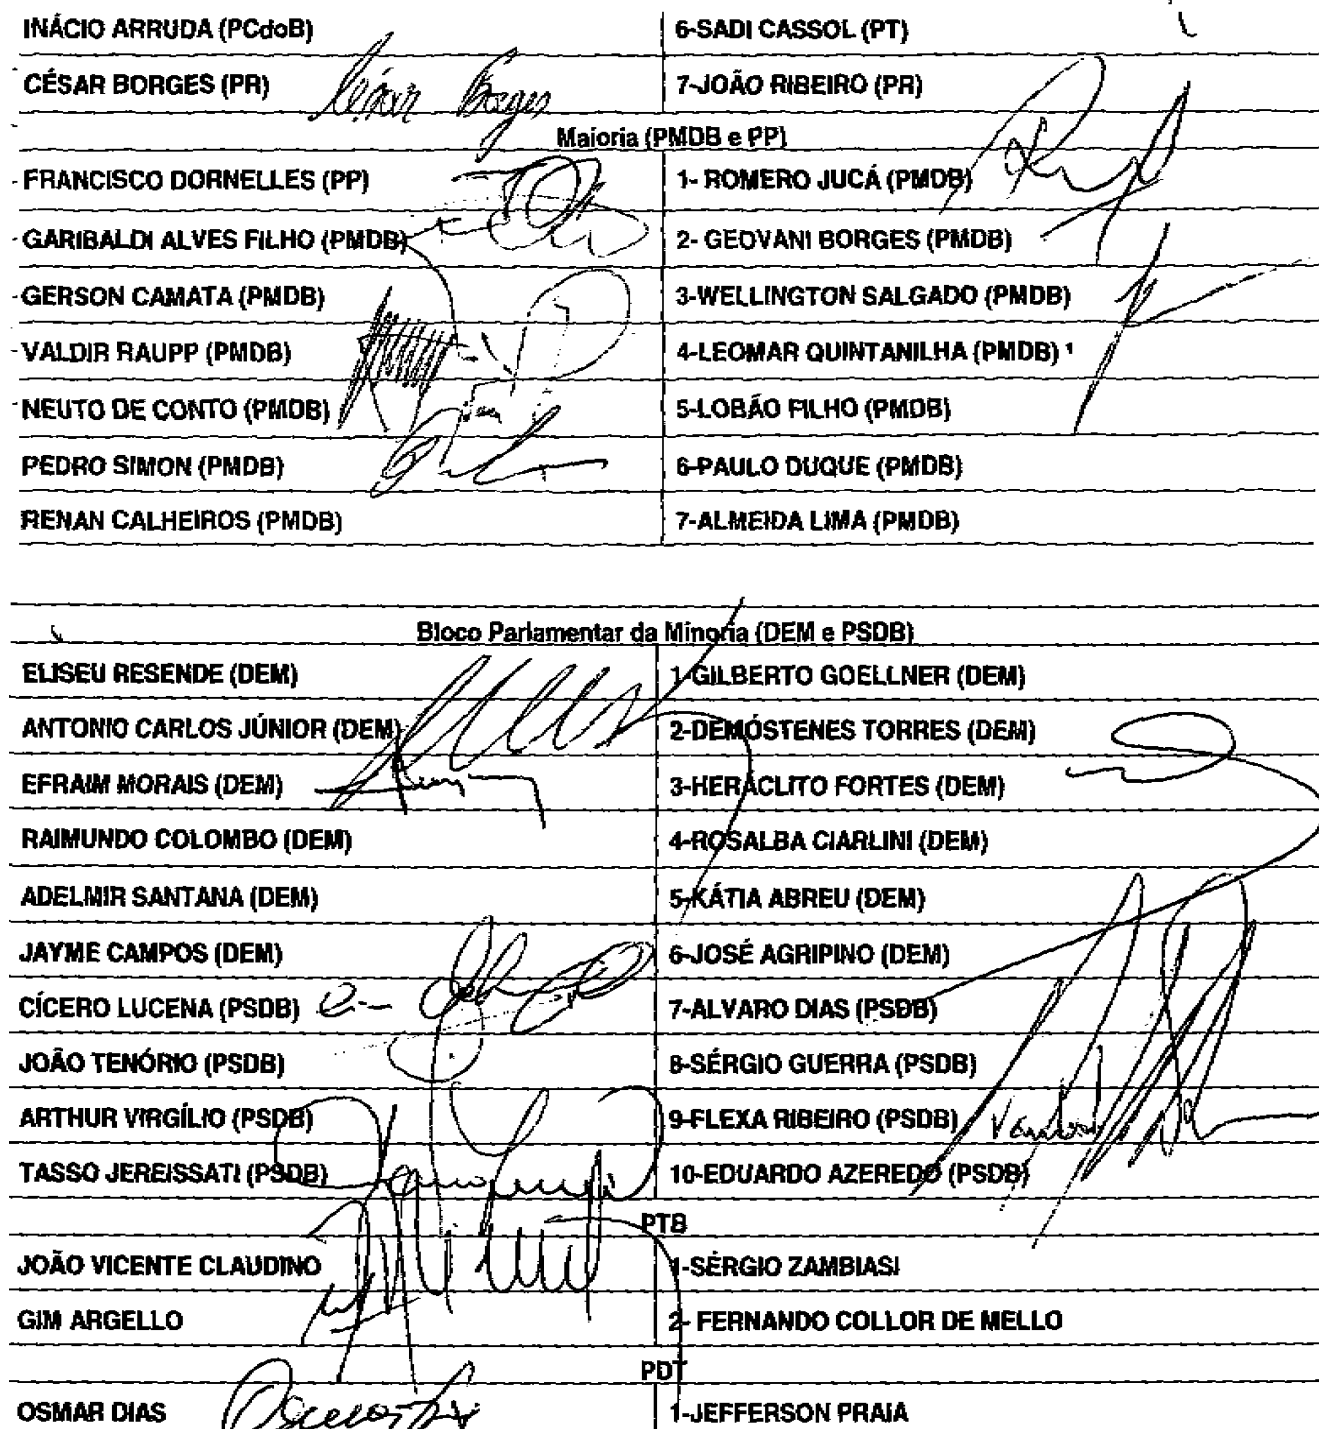 INÁCIO ARRUDA (PCdoB) 6-SADI CASSOL (PT)
CÉSAR BORGES (PR) César Borges 7-JOÃO RIBEIRO (PR)
Maioria (PMDB e PP)
FRANCISCO DORNELLES (PP) 1- ROMERO JUCÁ (PMDB)
GARIBALDI ALVES FILHO (PMDB) 2- GEOVANI BORGES (PMDB)
GERSON CAMATA (PMDB) 3-WELLINGTON SALGADO (PMDB)
VALDIR RAUPP (PMDB) 4-LEOMAR QUINTANILHA (PMDB) ¹
NEUTO DE CONTO (PMDB) 5-LOBÃO FILHO (PMDB)
PEDRO SIMON (PMDB) 6-PAULO DUQUE (PMDB)
RENAN CALHEIROS (PMDB) 7-ALMEIDA LIMA (PMDB)
Bloco Parlamentar da Minoria (DEM e PSDB)
ELISEU RESENDE (DEM) 1-GILBERTO GOELLNER (DEM)
ANTONIO CARLOS JÚNIOR (DEM) 2-DEMÓSTENES TORRES (DEM)
EFRAIM MORAIS (DEM) 3-HERÁCLITO FORTES (DEM)
RAIMUNDO COLOMBO (DEM) 4-ROSALBA CIARLINI (DEM)
ADELMIR SANTANA (DEM) 5-KÁTIA ABREU (DEM)
JAYME CAMPOS (DEM) 6-JOSÉ AGRIPINO (DEM)
CÍCERO LUCENA (PSDB) 7-ALVARO DIAS (PSDB)
JOÃO TENÓRIO (PSDB) 8-SÉRGIO GUERRA (PSDB)
ARTHUR VIRGÍLIO (PSDB) 9-FLEXA RIBEIRO (PSDB)
TASSO JEREISSATI (PSDB) 10-EDUARDO AZEREDO (PSDB)
PTB
JOÃO VICENTE CLAUDINO 1-SÉRGIO ZAMBIASI
GIM ARGELLO 2- FERNANDO COLLOR DE MELLO
PDT
OSMAR DIAS 1-JEFFERSON PRAIA